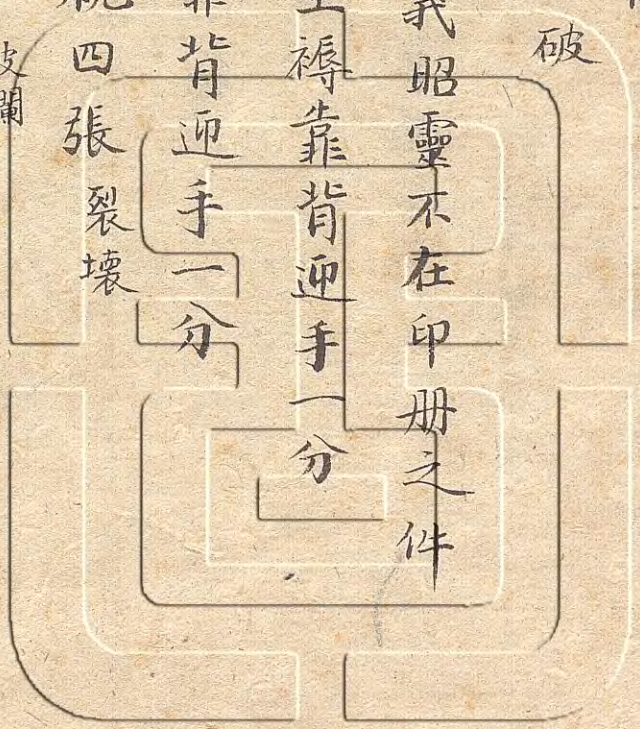 破
義昭靈不在印册之件
褥靠背迎手一分
靠背迎手一分
四張裂壞